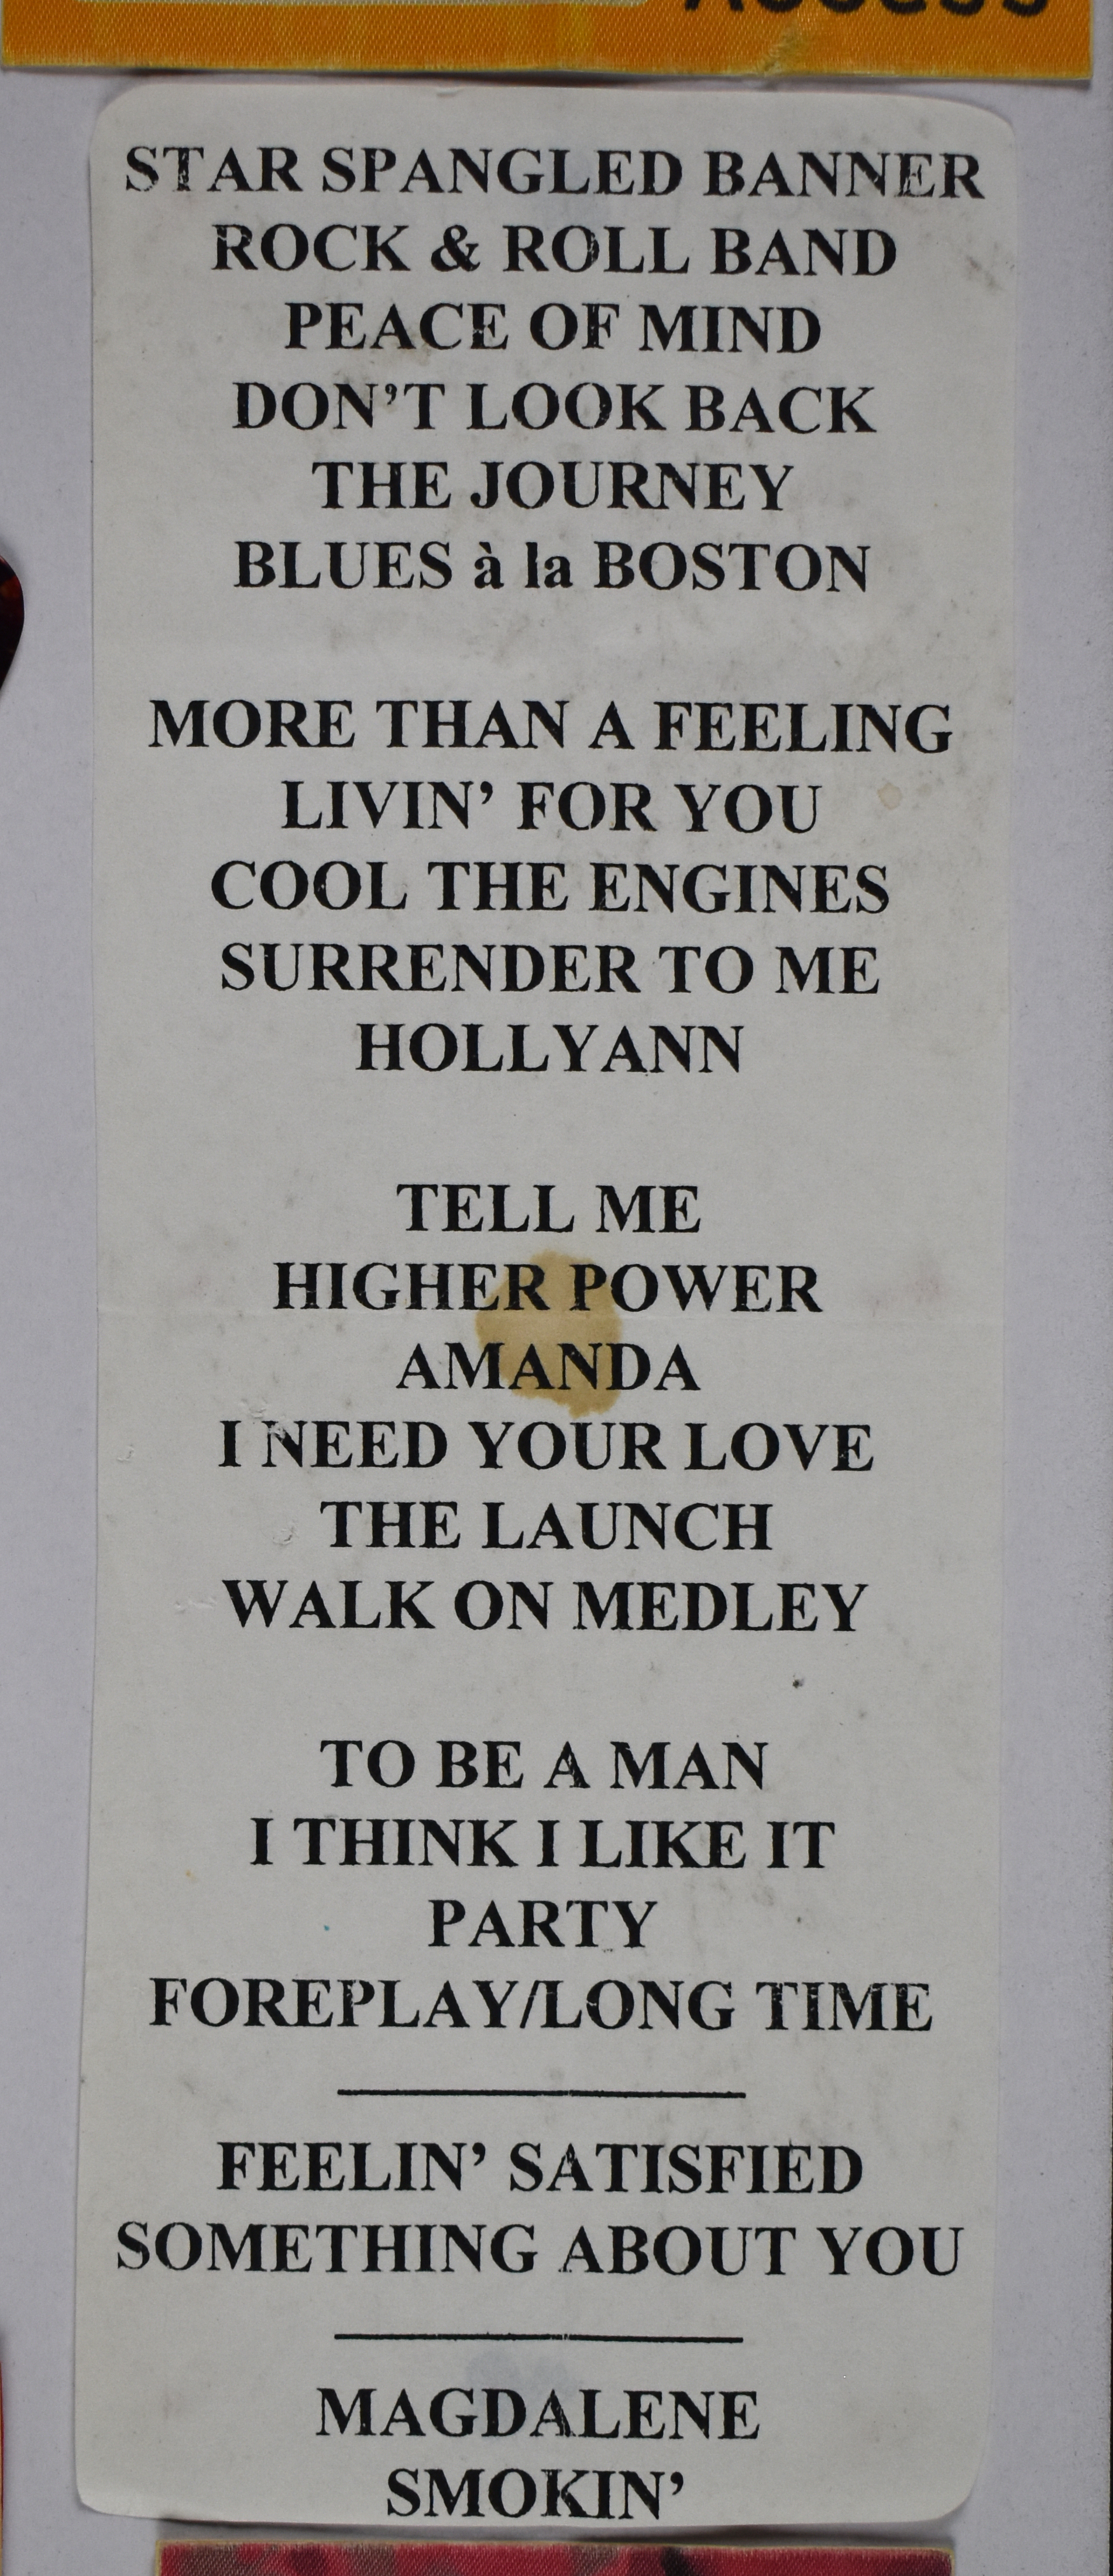 Access
STAR SPANGLED BANNER
ROCK & ROLL BAND
PEACE OF MIND
DON'T LOOK BACK
THE JOURNEY
BLUES à la BOSTON
MORE THAN A FEELING
LIVIN' FOR YOU
COOL THE ENGINES
SURRENDER TO ME
HOLLYANN
TELL ME
HIGHER POWER
AMANDA
I NEED YOUR LOVE
THE LAUNCH
WALK ON MEDLEY
TO BE A MAN
I THINK I LIKE IT
PARTY
FOREPLAY/LONG TIME
FEELIN' SATISFIED
SOMETHING ABOUT YOU
MAGDALENE
SMOKIN'